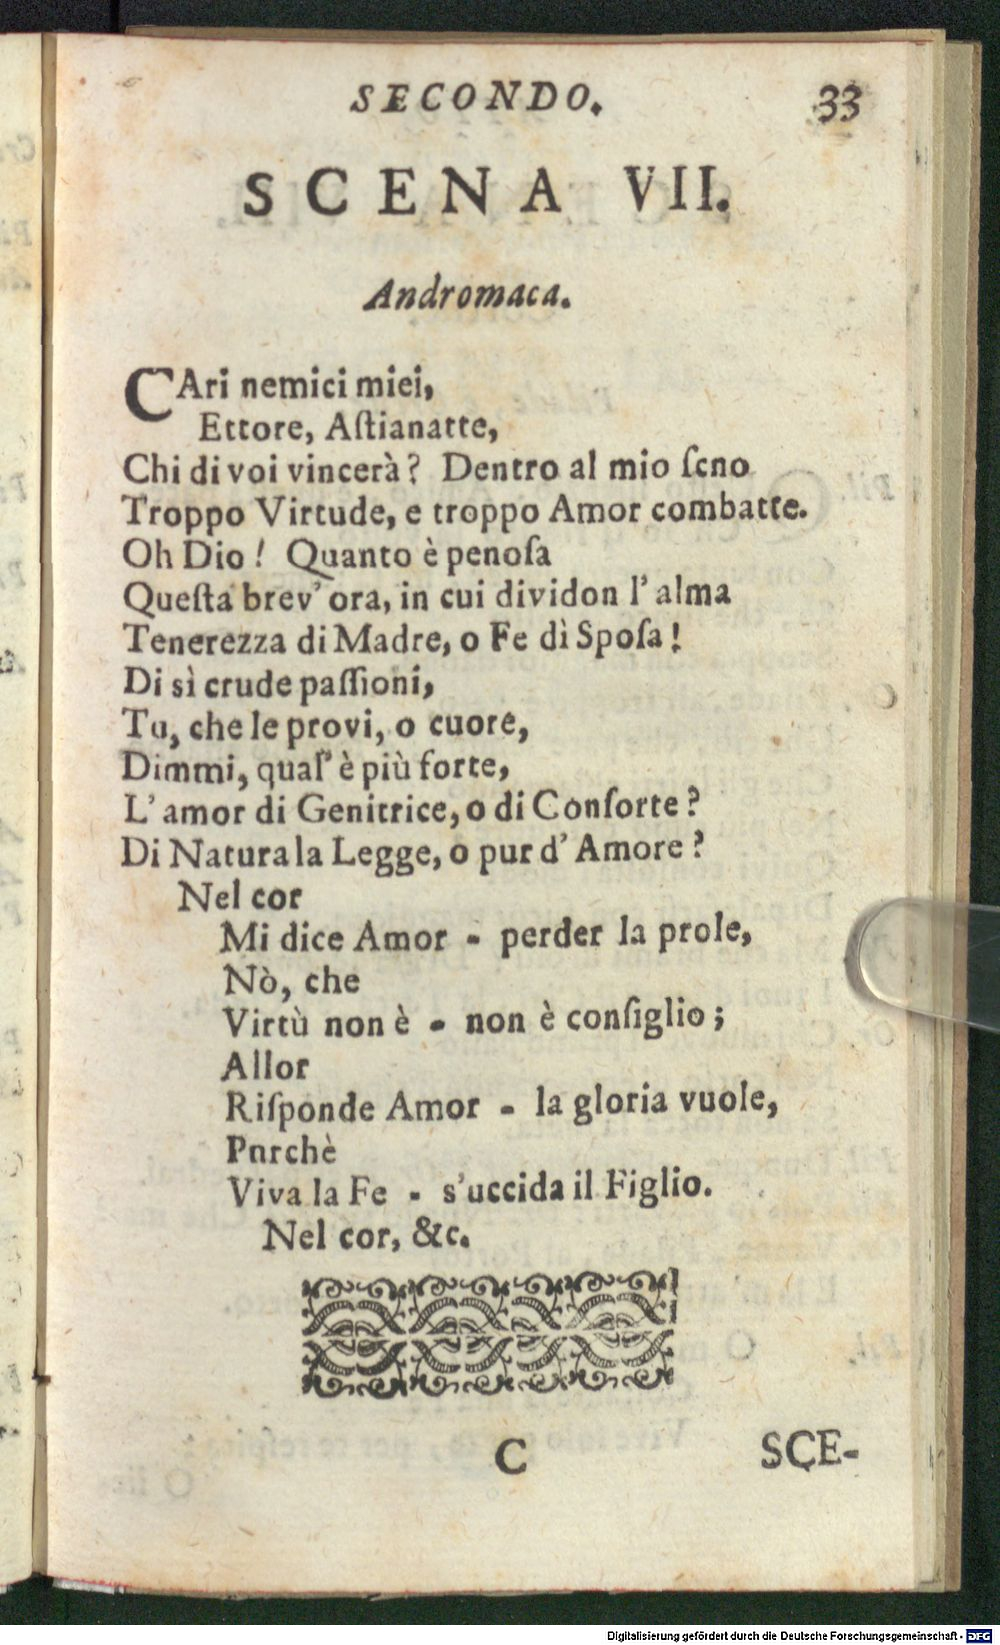 SECONDO. 33
SCENA VII.
Andromaca.
CAri nemici miei,
Ettore, Aſtianatte,
Chi di voi vincerà? Dentro al mio ſeno
Troppo Virtude, e troppo Amor combatte.
Oh Dio! Quanto è penoſa
Queſta brev' ora, in cui dividon l' alma
Tenerezza di Madre, o Fe dì Spoſa!
Di sì crude paſſioni,
Tu, che le provi, o cuore,
Dimmi, qual' è più forte,
L' amor di Genitrice, o di Conſorte?
Di Natura la Legge, o pur d' Amore?
Nel cor
Mi dice Amor - perder la prole,
Nò, che
Virtù non è - non è conſiglio;
Allor
Riſponde Amor - la gloria vuole,
Purchè
Viva la Fe - s'uccida il Figlio.
Nel cor, &c.
C SCE-
Digitalisierung gefördert durch die Deutsche Forschungsgemeinschaft - DFG